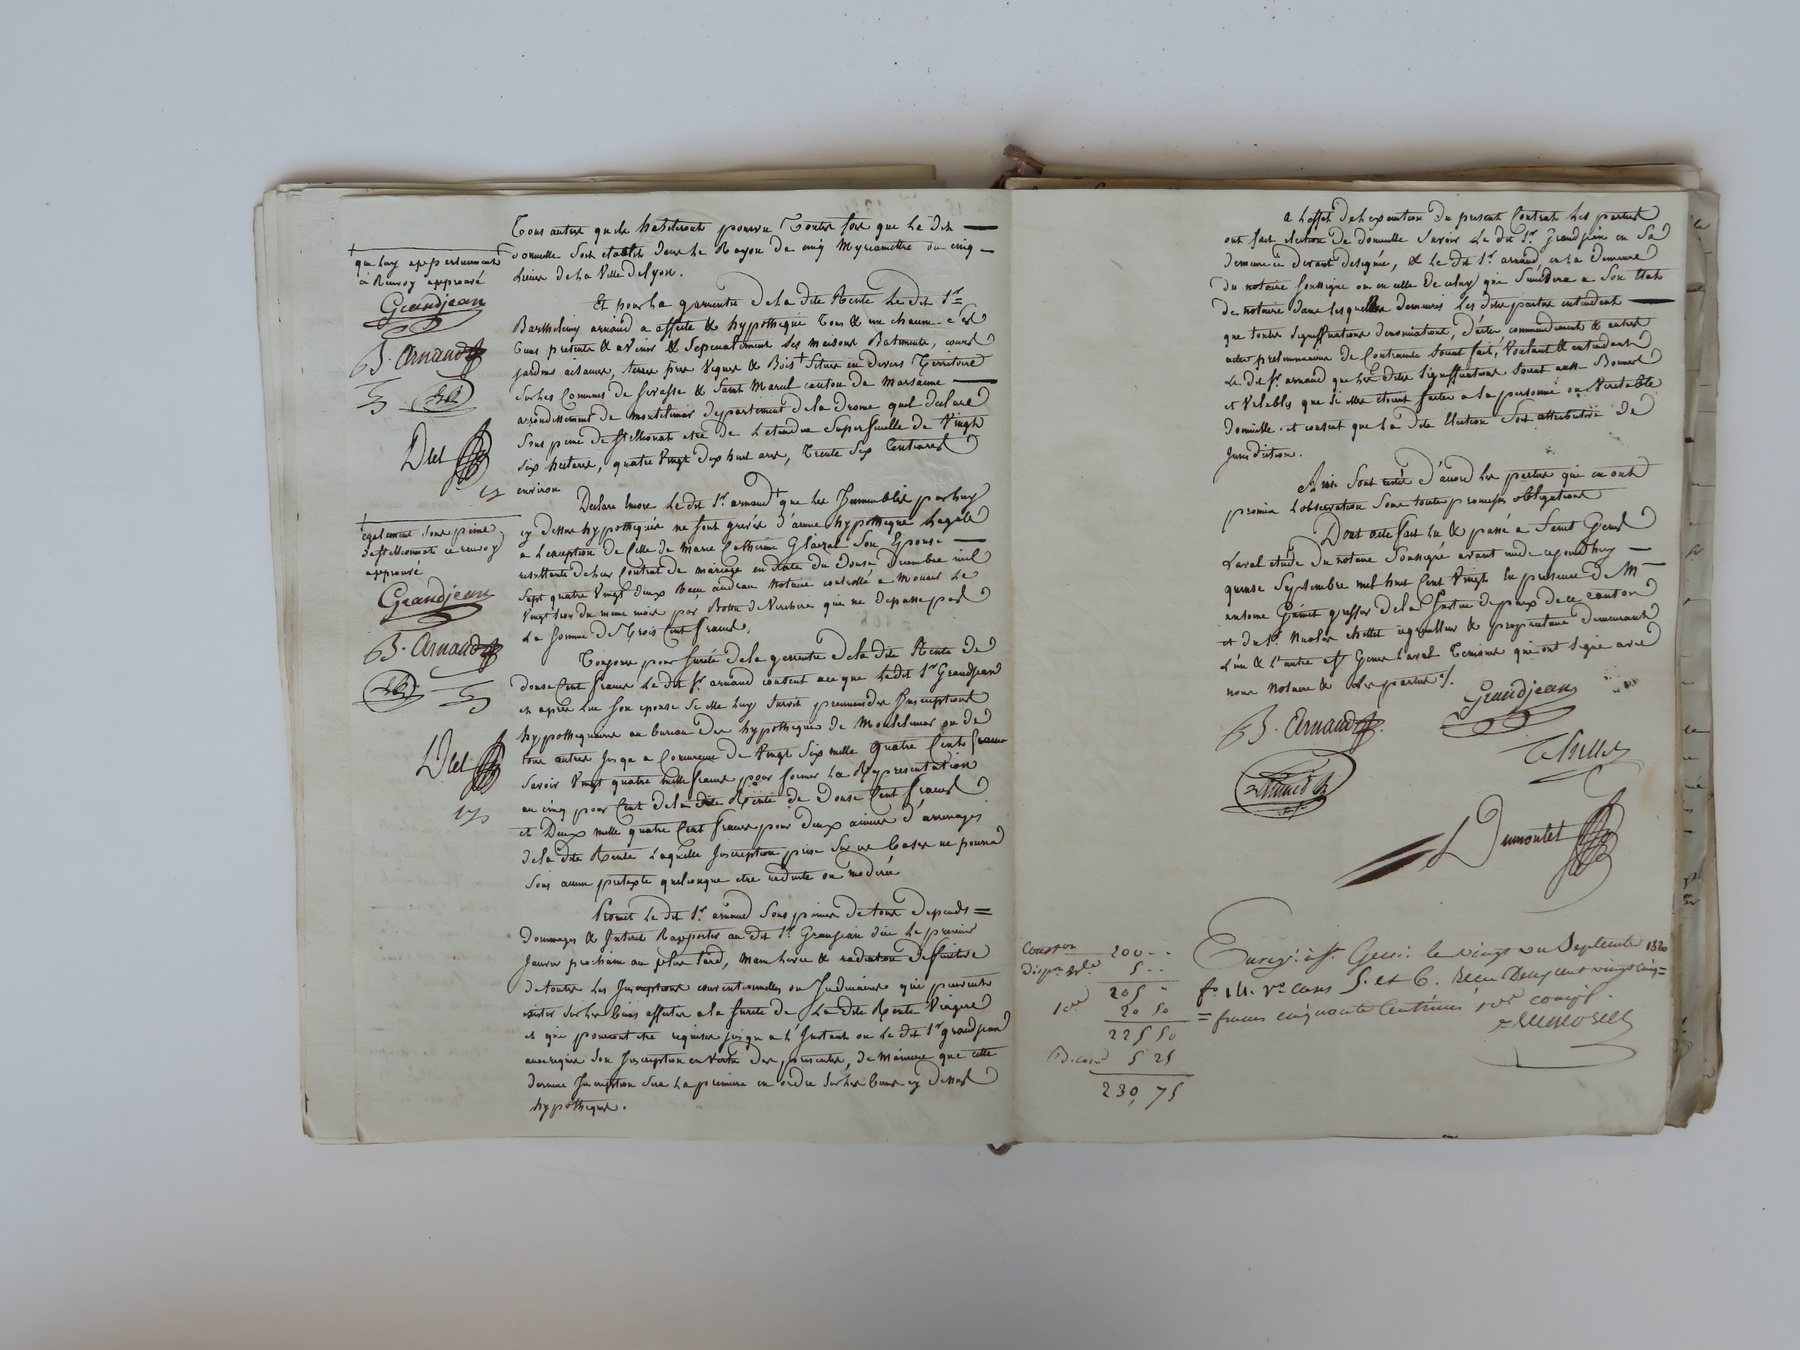 Tous autres quels habiteront pourvu Toutes fois que le dit
domicille soit etablit dans le Rayon de cinq Myriamettre ou cinq
Lieues de la Ville de Lyon.
Et pour la garrentie de la dite Rente Le dit Sr.
Barthelemy arnaud a affecté & hypothequé Tous & un chacun ces
biens présents & avenir & Separatement ses maisons Batiments, cours
jardins aisances, terres prés Vignes & Bois Situés en divers Territoire
Sur les Comunes de & Saint Marcel canton de Marsanne
arrondissement de montelimar departement de la drome quil declare
sous peine de Stellionat etre de L'etendue Superficielle de Vingt
Six hectares, quatre Vingt dix huit ares, Trente Six Centiares
environ
que luy appartiennent
ce Renvoy approuvé
Grandjean
B. Arnaud
Declare encore Le dit Sr. arnaud que les Immeubles par luy
cy dessus hypothequés ne sont grevés d'aucune hypotheque Legale
a L'exception de Celle de Marie Catherine Son Epouse
resultante de leur Contrat de mariage en date du Douze Decembre mil
Sept quatre Vingt deux Recu andreau Notaire controllé a Le
Vingt trois du meme mois par que ne depasse pas
La somme de Trois Cent francs.
egalement sous peine
de stellionat ce renvoy
approuvé
Grandjean
B. Arnaud
Toujours pour Sureté de la garrentie de la dite Rente de
douze Cent francs Le dit Sr. arnaud consent a ce que Ledit Sr Grandjean
et après Lui Son epouse Si elle luy Survit prennent des Inscriptions
hypothequaires au bureau des hypotheques de Montelimar ou de
tous autres jusqu a Concurence de Vingt Six mille Quatre Cents francs
Savoir Vingt quatre mille francs pour former La Représentation
au cinq pour Cent de la dite Rente de Douze Cent francs
et Deux mille quatre Cent francs pour deux années d'arrerages
de la dite Rente Laquelle Inscription prise Sur ces bases ne pourra
Sous aucun pretexte quelconque etre reduite ou modérée
Promet Le dit Sr. arnaud Sous peines de tous Depends =
Dommages & Interets Rapporter au dit Sr. Grandjean d'ici Le premier
Janvier prochain au plus tard, main Levée & radiation deffinitive
de toutes Les Inscriptions conventionnelles ou Judiciaires qui peuvent
exister Sur les biens affectés a la Sureté de La dite Rente Viagere
et qui pourront etre requises jusqu a L'Instant ou Le dit Sr grandjean
aura requis Son Inscription en vertu des presentes, de Maniere que cette
derniere Inscription Sera La premiere en ordre Sur les biens cy dessus
hypothequés.
A L'effet de L'execution du present Contrat Les parties
ont fait election de domicille Savoir Le dit Sr. Grandjean en Sa
demeure ci devant designée, & Le dit Sr. arnaud en La demeure
du notaire Soussigné ou en celle de celuy qui Succedera a Son Etat
de notaire dans lesquelles demeures Les dites parties entendent
que toutes significations denonciations, d'actes commandement & autres
actes preliminaires de Contrainte Soient fait, Voulant & entendant
Le dit Sr. arnaud que Les dites Significations Soient aussi Bonnes
et Valables que Si elles etoient faites a la personne ou Veritable
domicille. et consent que La dite Election Soit attributive de
Jurisdiction.
Ainsi Sont restés d'acord Les parties qui en ont
promis L'observation Sous toutes promesses obligations
Dont acte fait Lu & passé a Saint Genis
Laval etude du notaire Soussigné avant midi cejourdhuy
quinze Septembre mil huit Cent Vingt En presence de Mr
antoine greffier de la Justice de paix de ce canton
et de Sr. Nicolas & proprietaire demeurants
L'un & L'autre a St Genis Laval Temoins qui ont Signé avec
nous Notaire & Les parties ./.
Grandjean
B. Arnaud
Dumontet
Enreg. a St. Genis le vingt un Septembre 1820
fo 111. Vo. cases 5. et 6. Recu Deux cent vingt cinq =
= francs cinquante Centimes 10e compris.
200 . .
5 . .
205 "
10e 20 50
225 50
5 25
230, 75